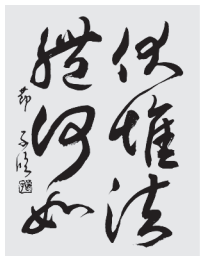 伏惟法
體何如